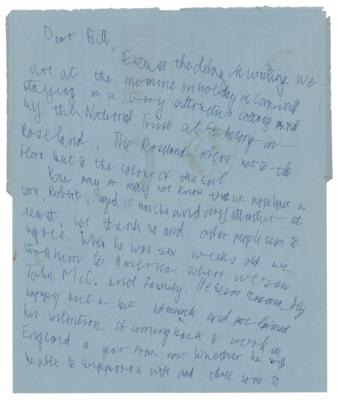 Dear Bill,
Excuse the delay in writing. We
are at the moment on holiday in Cornwall
staying in a very attractive cottage owned
by the National Trust at St Antony-in-
Roseland. The Roseland refers not to the
flora but to the colour of the soil
You may or may not know that we now have a
son, Robert, aged 10 months and very attractive - at
least, we think so and other people seem to
agree. When he was six weeks old we
took him to America where we saw
John McC. and family. He seems reasonably
happy but a bit homesick and proclaimed
his intention of coming back to work in
England a year from now. Whether he will
be able to support a wife and three sons to